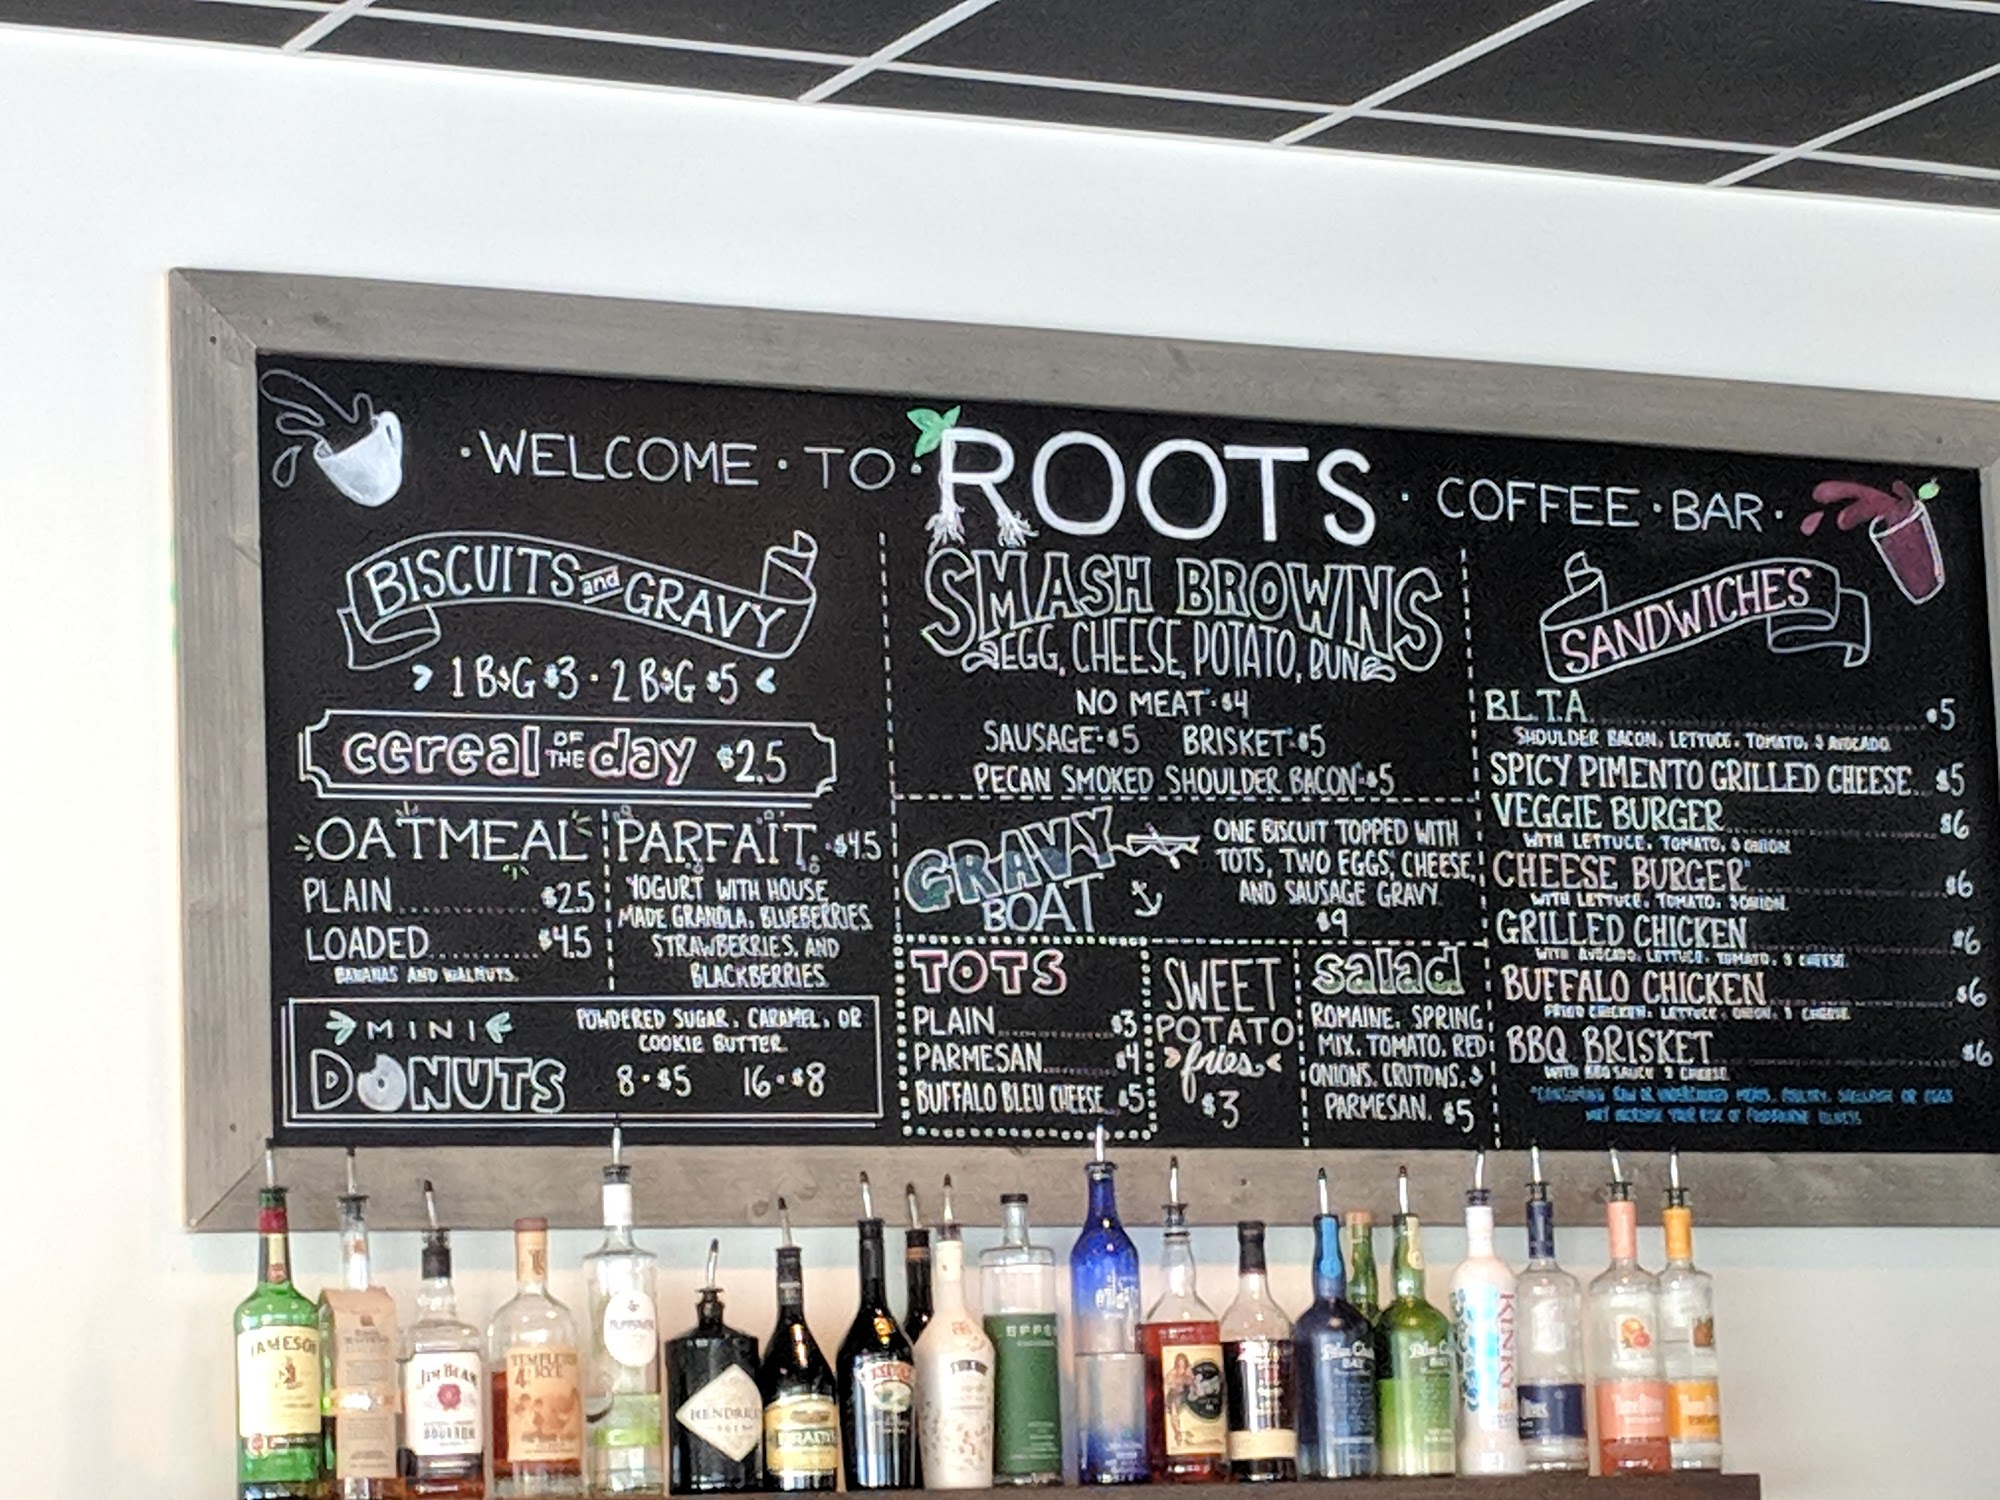 · WELCOME · TO · ROOTS · COFFEE · BAR ·
BISCUITS and GRAVY
1 B&G $3 · 2 B&G $5
cereal OF THE day $2.5
OATMEAL
PLAIN $2.5
LOADED $4.5
BANANAS AND WALNUTS.
PARFAIT $4.5
YOGURT WITH HOUSE
MADE GRANOLA, BLUEBERRIES,
STRAWBERRIES, AND
BLACKBERRIES.
MINI
DONUTS
POWDERED SUGAR, CARAMEL, OR
COOKIE BUTTER.
8 · $5 16 · $8
SMASH BROWNS
EGG, CHEESE, POTATO, BUN
NO MEAT* · $4
SAUSAGE* · $5 BRISKET* · $5
PECAN SMOKED SHOULDER BACON* · $5
GRAVY
BOAT
ONE BISCUIT TOPPED WITH
TOTS, TWO EGGS*, CHEESE,
AND SAUSAGE GRAVY.
$9
TOTS
PLAIN $3
PARMESAN $4
BUFFALO BLEU CHEESE $5
SWEET
POTATO
fries
$3
salad
ROMAINE, SPRING
MIX, TOMATO, RED
ONIONS, CRUTONS, &
PARMESAN. $5
SANDWICHES
B.L.T.A. $5
SHOULDER BACON, LETTUCE, TOMATO, & AVOCADO.
SPICY PIMENTO GRILLED CHEESE $5
VEGGIE BURGER $6
WITH LETTUCE, TOMATO, & ONION.
CHEESE BURGER* $6
WITH LETTUCE, TOMATO, & ONION.
GRILLED CHICKEN $6
WITH AVOCADO, LETTUCE, TOMATO, & CHEESE.
BUFFALO CHICKEN $6
FRIED CHICKEN, LETTUCE, ONION, & CHEESE.
BBQ BRISKET $6
WITH BBQ SAUCE & CHEESE.
*CONSUMING RAW OR UNDERCOOKED MEATS, POULTRY, SHELLFISH OR EGGS
MAY INCREASE YOUR RISK OF FOODBORNE ILLNESS
JAMESON
JIM BEAM
BOURBON
TEMPLETON
4
RYE
HENDRICK'S
GIN
BRADY'S
BAILEYS
EFFEN
Blue Chair
BAY
Blue Chair
BAY
KINKY